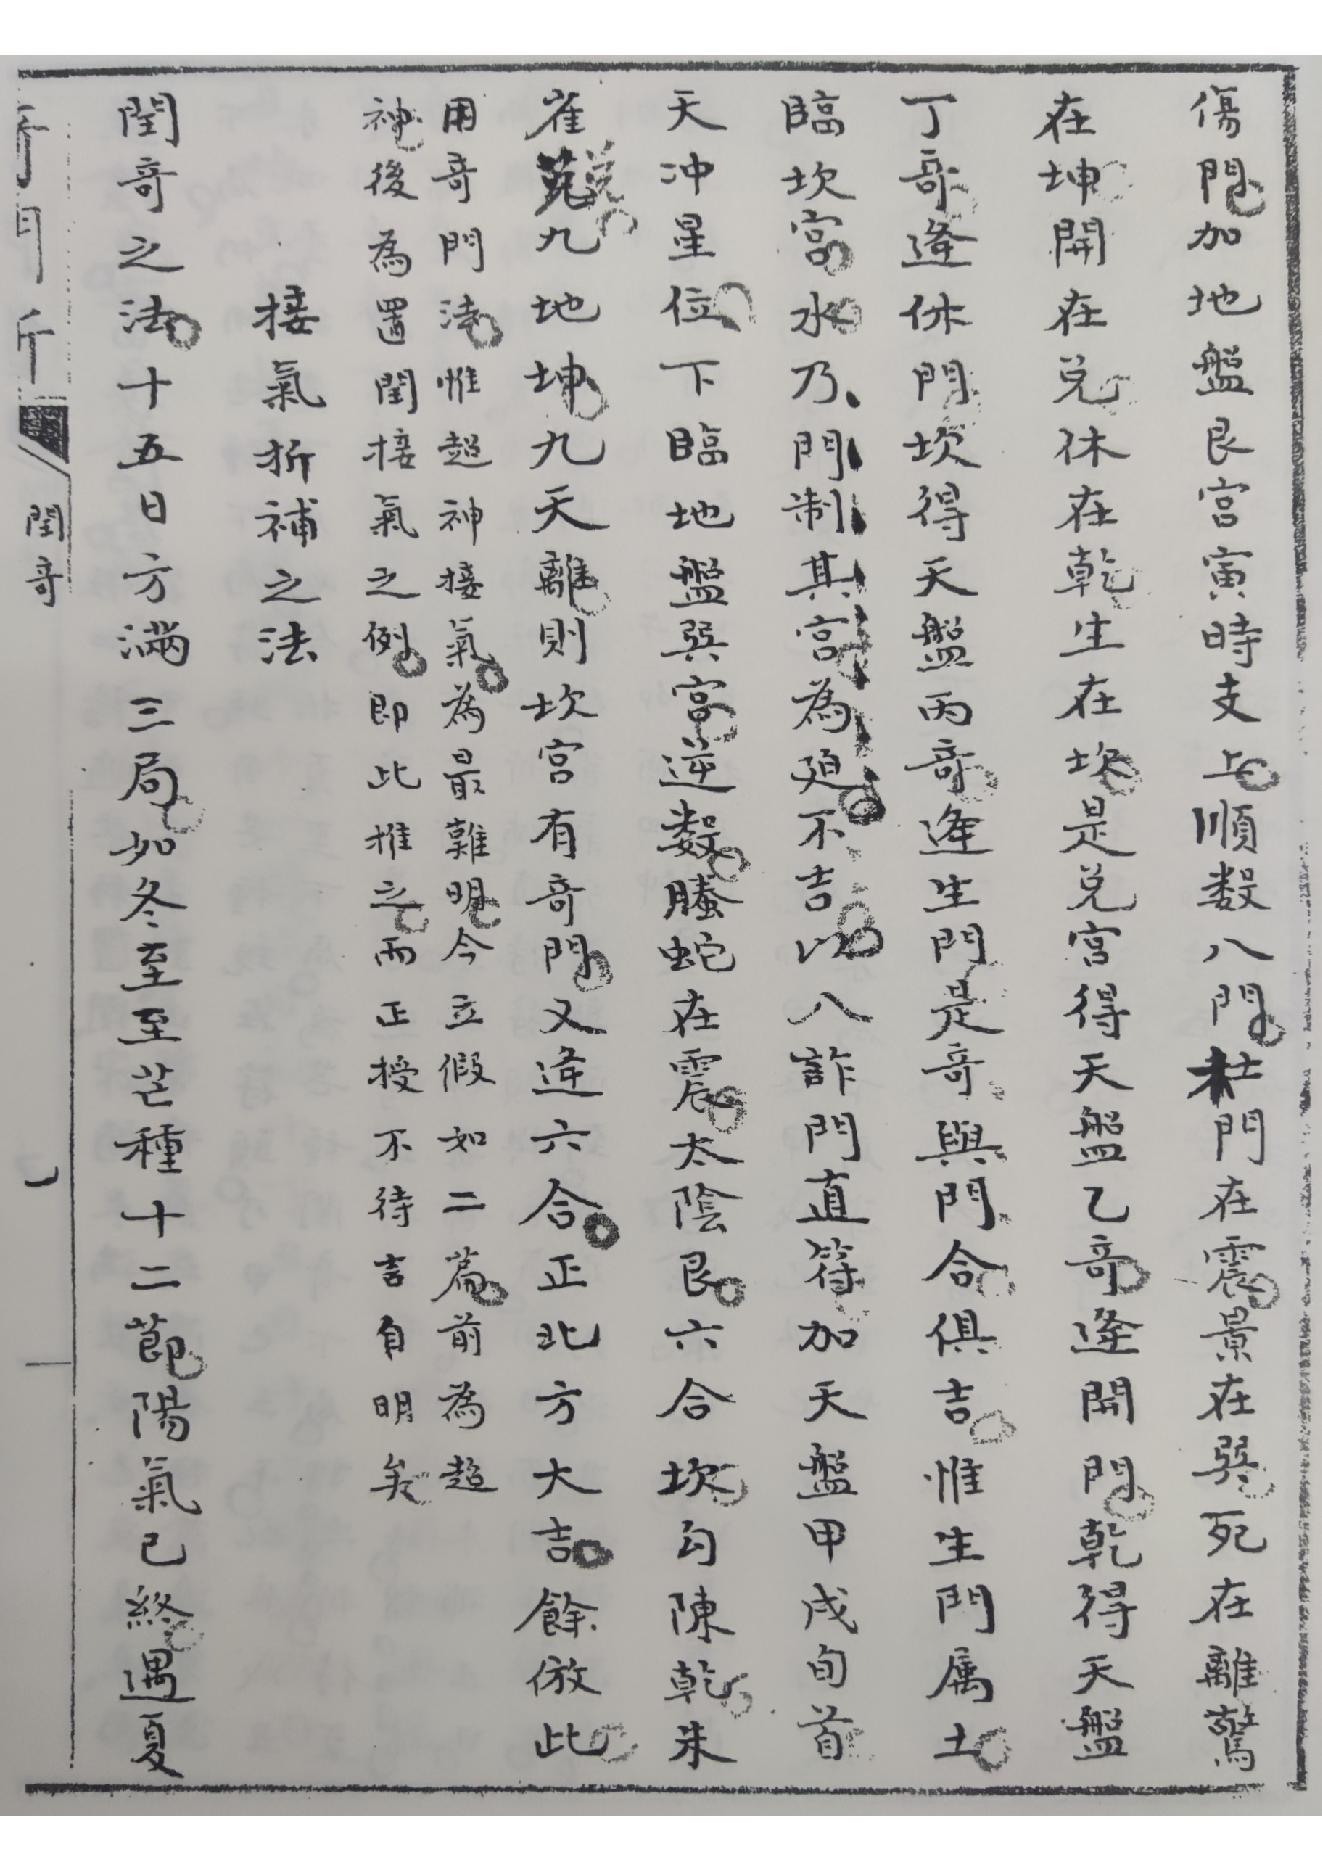 傷門加地盤艮宮寅時支上順数八門杜門在震景在巽死在離驚
在坤開在兑休在乾生在坎是兑宮得天盤乙竒逢開門乾得天盤
丁竒逢休門坎得天盤丙竒逢生門是竒與門合俱吉惟生門属土
臨坎宮水乃門制其宮為廹不吉以八詐門直符加天盤甲戌旬首
天冲星位下臨地盤巽宮逆数螣蛇在震太陰艮六合坎勾陳乾朱
雀兑九地坤九天離則坎宮有竒門又逢六合正北方大吉餘倣此
用竒門法惟超神接氣為最難明今立假如二篇前為超
神後為置閏接氣之例即此推之而正授不待言自明矣
接氣折補之法
閏竒之法十五日方滿三局如冬至至芒種十二節陽氣已終遇夏
閏竒